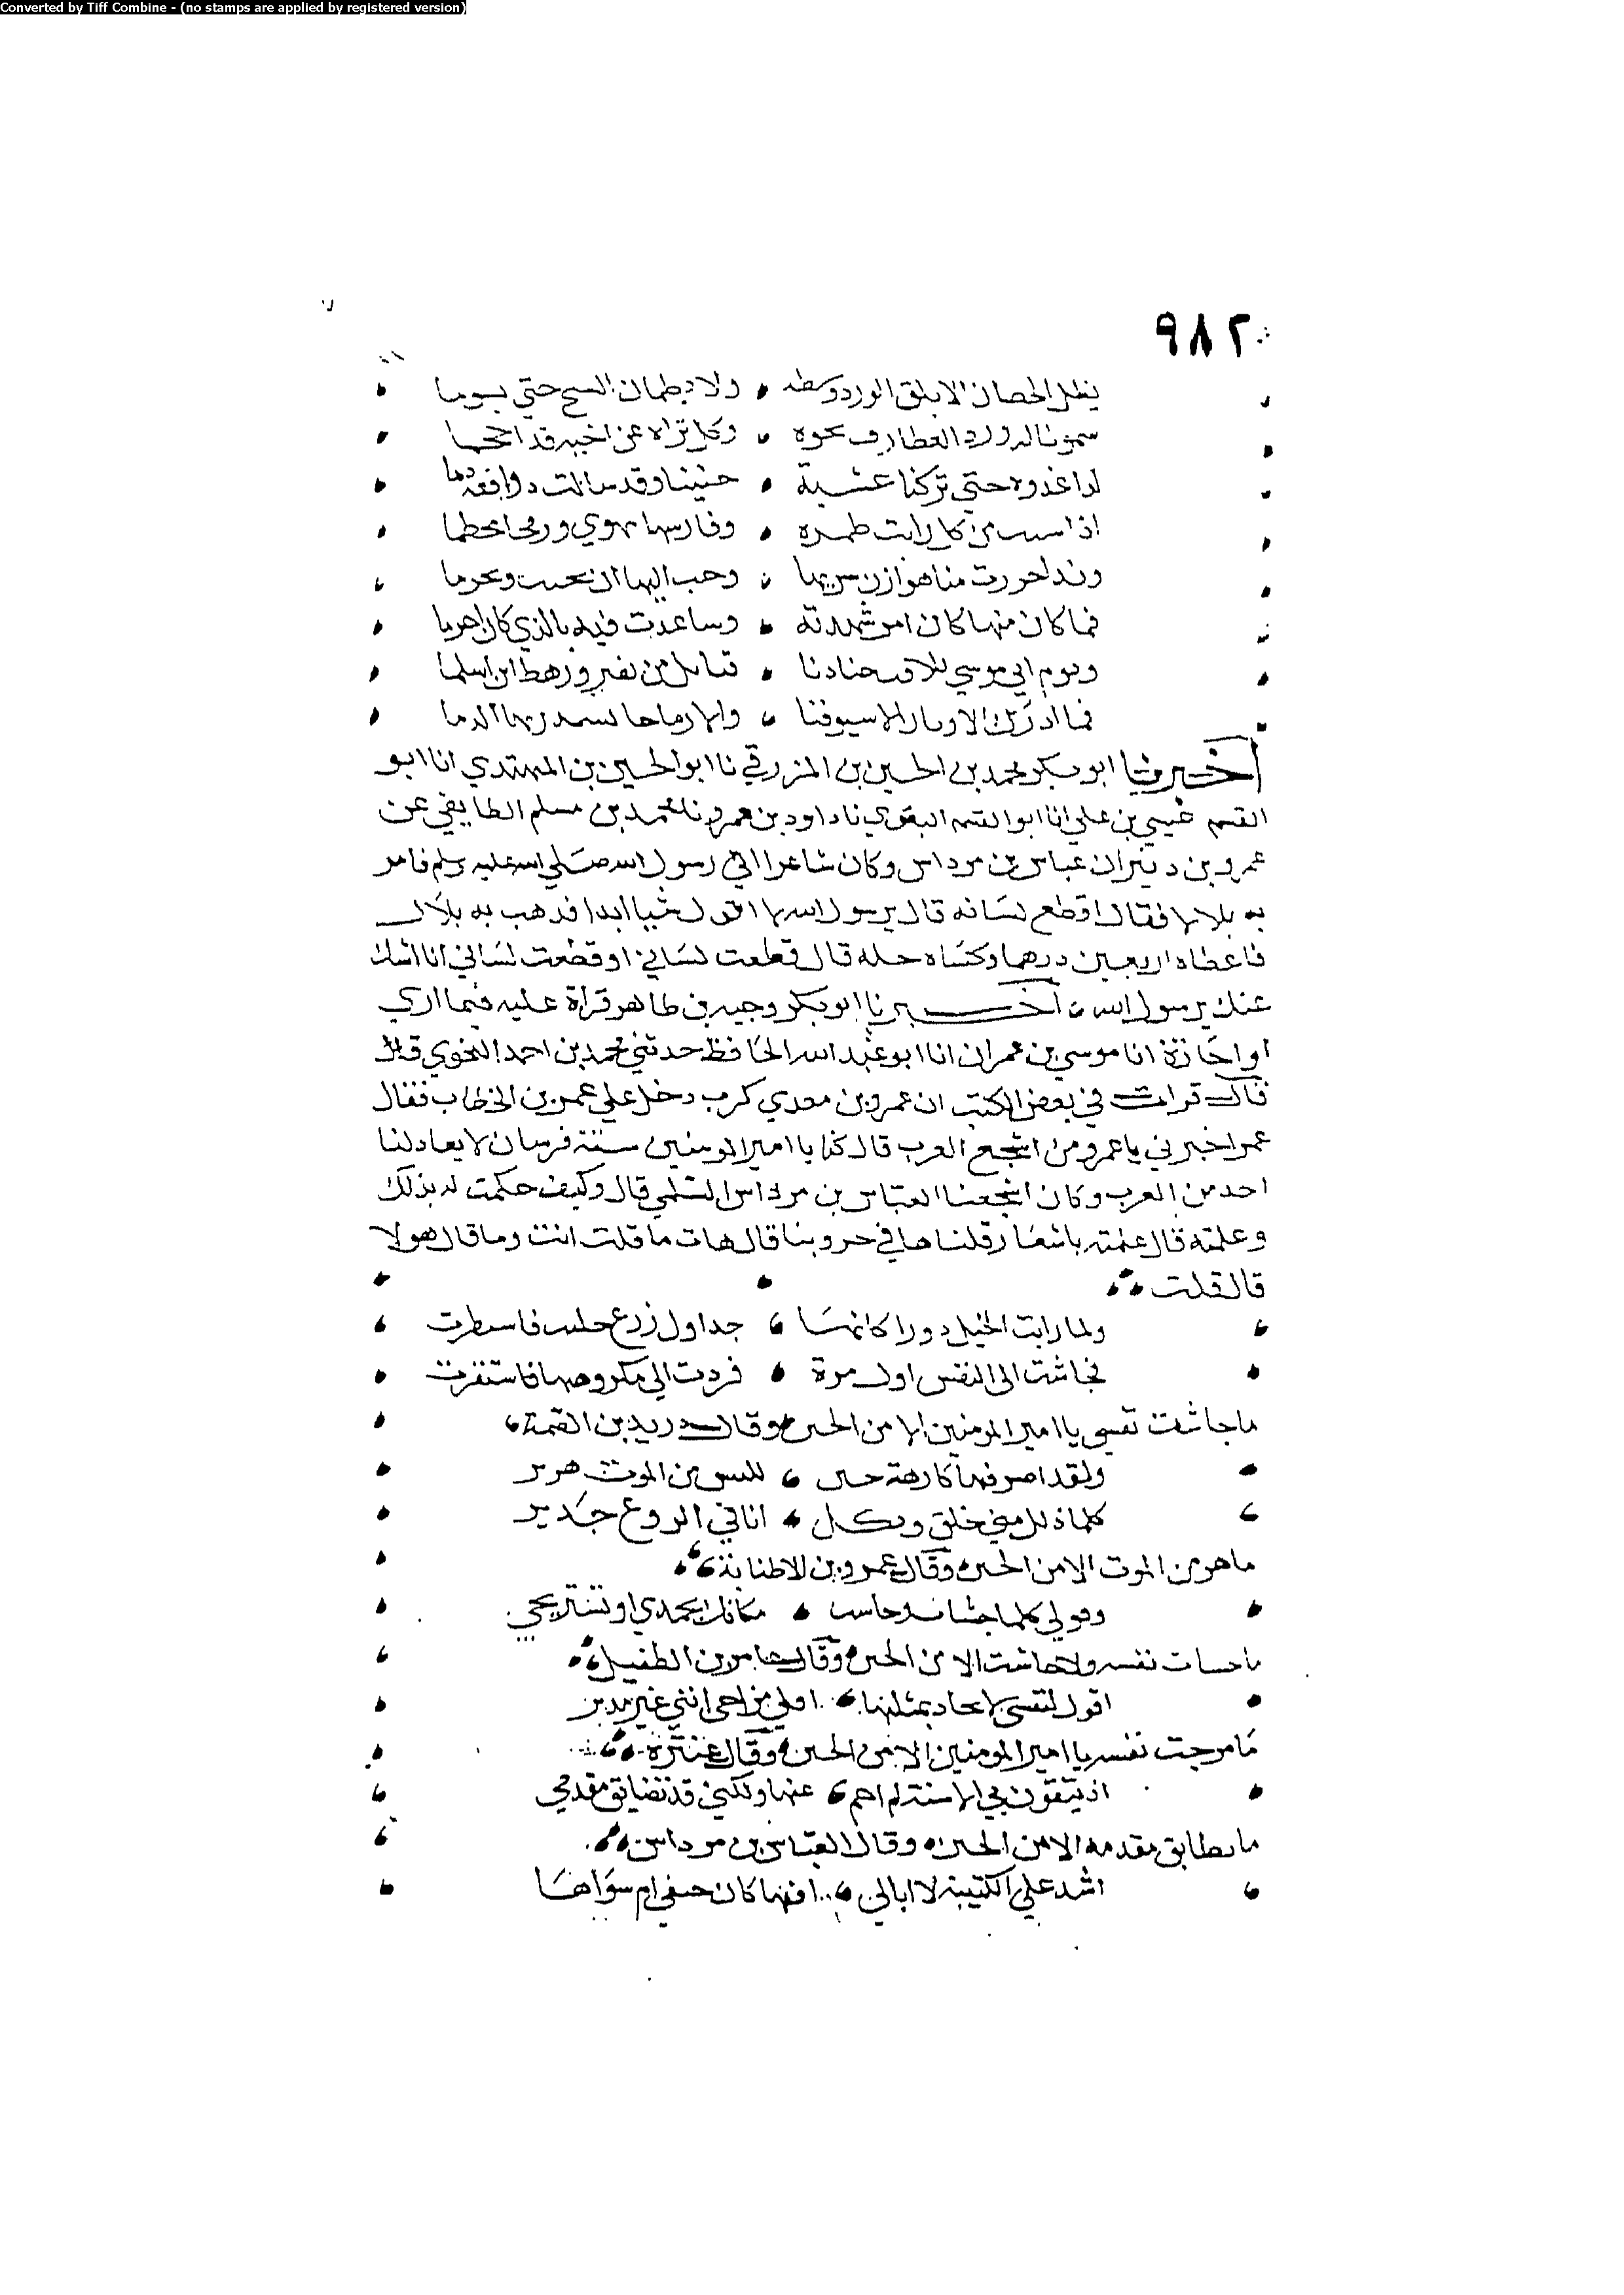 Converted by Tiff Combine - (no stamps are applied by registered version)
٩٨٢
يظل الحصان الابلق الورد وسطه ولا يطمان الشيح حتى يسوما
سمونا لهم ورد القطا زف نحوه وكل تراه عن اخيه قد احجما
لدا غدوه حتى تركنا عشية حنينا وقد سالت دوافعه دما
اذا شيت من كل رايت طمره وفارسها يهوي ورمحا محطما
وقد احررت منا هوازن سربها وحب اليها ان نخيب ونحرما
فما كان منها كان امر شهدته وساعدت فيه بالذي كان احرما
ويوم ابي موسى تلاقت جنادنا قبايل من نصر ورهط ابن اسلما
فما ادرك الاوتار الا سيوفنا والا رماحا الدما
اخبرنا ابو بكر محمد بن الحسين بن المزرقي نا ابو الحسين بن المهتدي انا ابو
القسم عيسى بن علي انا ابو القسم البغوي نا داود بن عمرو نا محمد بن مسلم الطايفي عن
عمرو بن دينر ان عباس بن مرداس وكان شاعرا اتى رسول الله صلى الله عليه وسلم فامر
به بلالا فقال اقطع لسانه قال يرسول الله لا اقول شيا ابدا فذهب به بلال
فاعطاه اربعين درهما وكساه حله قال قطعت لساني او قطعت لساني انا اشك
عنك يرسول الله اخبرنا ابو بكر وجيه بن طاهر قراة عليه فيما ارى
او اجازة انا موسى بن عمران انا ابو عبد الله الحافظ حدثني محمد بن احمد النحوي قال
قال قرات في بعض الكتب ان عمرو بن معدي كرب دخل على عمر بن الخطاب فقال
عمر اخبرني يا عمرو من اشجع العرب قال كنا يا امير المومنين ستة فرسان لا يعادلنا
احد من العرب وكان اشجعنا العباس بن مرداس السلمي قال وكيف حكمت له بذلك
وعلمته قال علمته باشعار قلناها في حروبنا قال هات ما قلت انت وما قال هولا
قال قلت
ولما رايت الخيل دورا كانها جداول زرع خليت فاسبطرت
فجاشت الى النفس اول مرة فردت الى مكروهها فاستقرت
ما جاشت نفسي يا امير المومنين الا من الجبن وقال دريد بن الصمة
ولقد اصرفها كارهة حين للنفس من الموت هرير
كلما ذلك مني خلق وبكل انا في الروع جدير
ما هر من الموت الا من الجبن وقال عمرو بن الاطنابة
وقولي كلما جشات وجاشت مكانك تحمدي او تستريحي
ما جشات نفسه ولا جاشت الا من الجبن وقال عامر بن الطفيل
اقول لنفسي لا يجاد بمثلها اقلي مراحي انني غير مدبر
ما مرحت نفسه يا امير المومنين الا من الجبن وقال عنترة
اذ يتقون بي الاسنة لم اخم عنها ولكني قد تضايق مقدمي
ما تضايق مقدمه الا من الجبن وقال العباس بن مرداس
اشد على الكتيبة لا ابالي افيها كان حتفي ام سواها